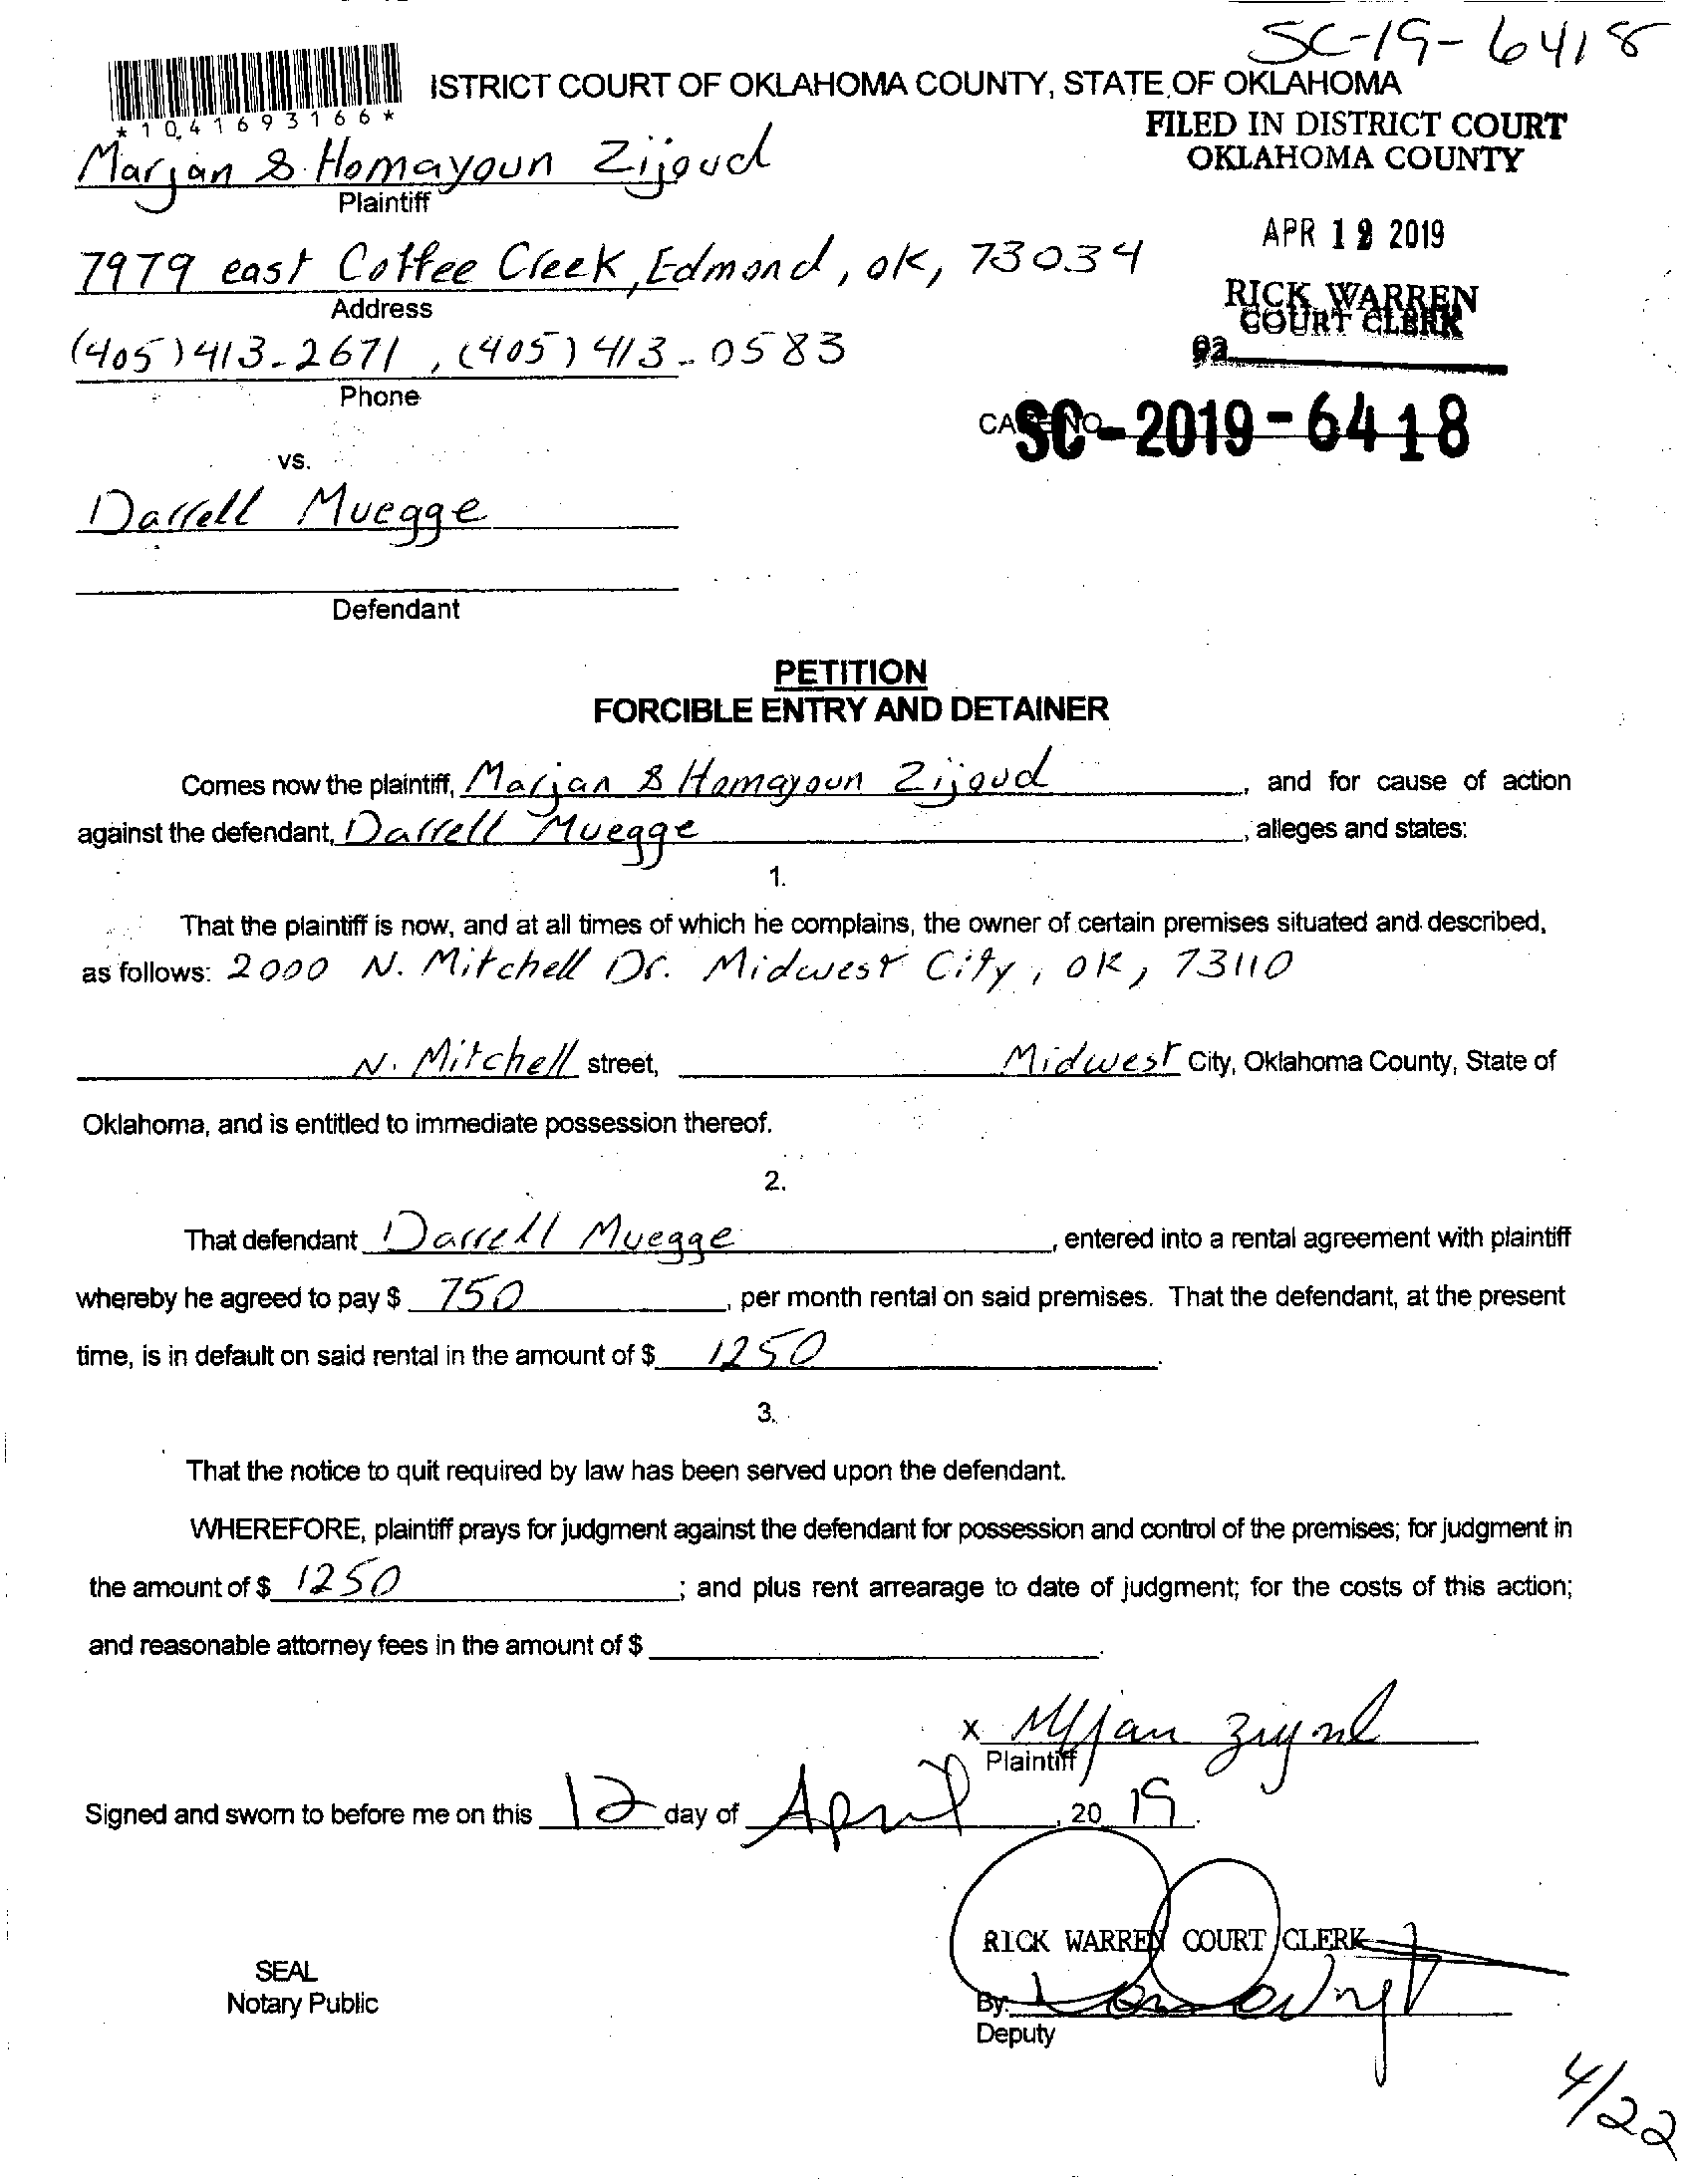 SC-19-6418
ISTRICT COURT OF OKLAHOMA COUNTY, STATE OF OKLAHOMA
*1041693166*
FILED IN DISTRICT COURT
OKLAHOMA COUNTY
Marjan & Homayoun Zijoud
Plaintiff
APR 12 2019
7979 east Coffee Creek, Edmond, ok, 73034
Address
RICK WARREN
COURT CLERK
(405) 413-2671, (405) 413-0583
Phone
SC-2019-6418
vs.
Darrell Muegge
Defendant
PETITION
FORCIBLE ENTRY AND DETAINER
Comes now the plaintiff, Marjan & Homayoun Zijoud, and for cause of action
against the defendant, Darrell Muegge, alleges and states:
1.
That the plaintiff is now, and at all times of which he complains, the owner of certain premises situated and described,
as follows: 2000 N. Mitchell Dr. Midwest City, OK, 73110
N. Mitchell street, Midwest City, Oklahoma County, State of
Oklahoma, and is entitled to immediate possession thereof.
2.
That defendant Darrell Muegge, entered into a rental agreement with plaintiff
whereby he agreed to pay $ 750, per month rental on said premises. That the defendant, at the present
time, is in default on said rental in the amount of $ 1250.
3.
That the notice to quit required by law has been served upon the defendant.
WHEREFORE, plaintiff prays for judgment against the defendant for possession and control of the premises; for judgment in
the amount of $ 1250; and plus rent arrearage to date of judgment; for the costs of this action;
and reasonable attorney fees in the amount of $
x Marjan Zijoud
Plaintiff
Signed and sworn to before me on this 12 day of April, 2019.
RICK WARREN COURT CLERK
SEAL
Notary Public
By:
Deputy
4/22